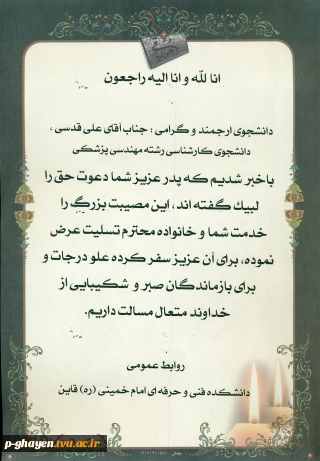 انا لله و انا الیه راجعون
دانشجوی ارجمند و گرامی : جناب آقای علی قدسی ،
دانشجوی کارشناسی رشته مهندسی پزشکی
باخبر شدیم که پدر عزیز شما دعوت حق را
لبیک گفته اند، این مصیبت بزرگ را
خدمت شما و خانواده محترم تسلیت عرض
نموده، برای آن عزیز سفر کرده علو درجات و
برای بازماندگان صبر و شکیبایی از
خداوند متعال مسالت داریم.
روابط عمومی
دانشکده فنی و حرفه ای امام خمینی (ره) قاین
p-ghayen.tvu.ac.ir